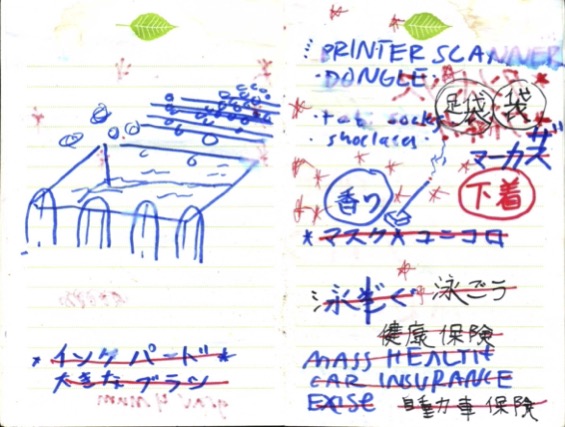 インクパード
大きなブラシ
PRINTER SCANNER
DONGLE
足袋 袋
tabi socks
shoelaces
マーカーズ
香り
下着
マスク ユニコロ
泳ぐ 泳ごう
健康保険
MASS HEALTH
CAR INSURANCE
EXISE 自動車保険